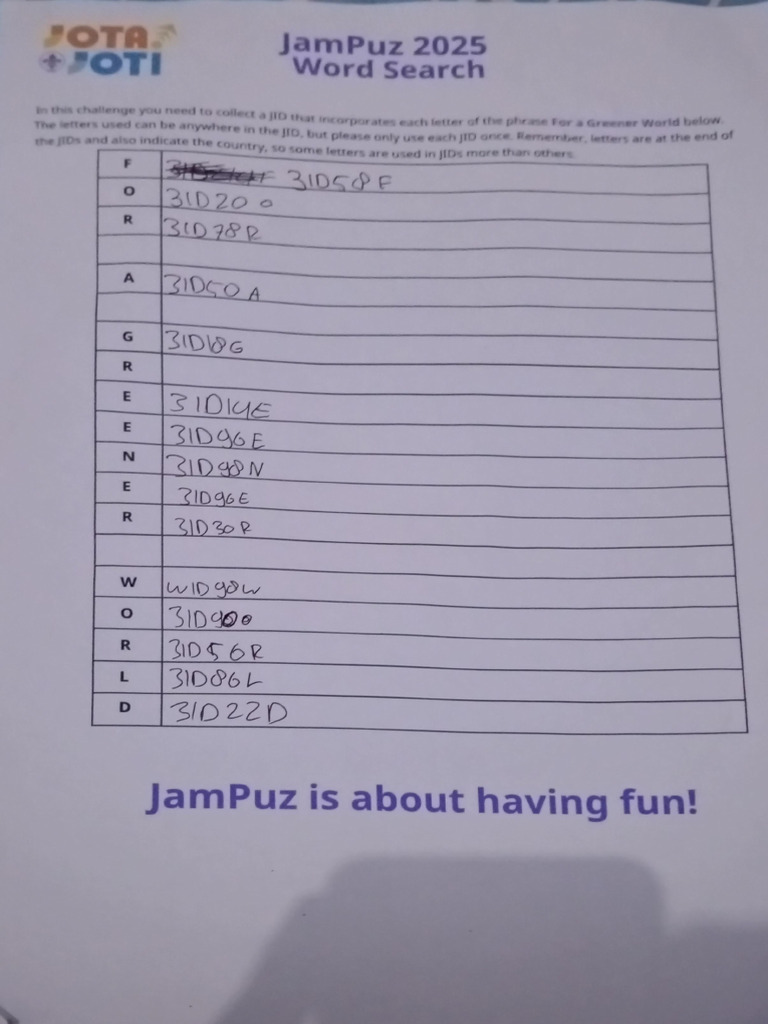 JOTA
JOTI
JamPuz 2025
Word Search
In this challenge you need to collect a JID that incorporates each letter of the phrase For a Greener World below.
The letters used can be anywhere in the JID, but please only use each JID once. Remember, letters are at the end of
the JIDs and also indicate the country, so some letters are used in JIDs more than others.
F 31D58F
O 31D20 o
R 31D78R
A 31D50 A
G 31D18G
R
E 31D14E
E 31D96E
N 31D98N
E 31D96E
R 31D30R
W W1D98W
O 31D90o
R 31D56R
L 31D86L
D 31D22D
JamPuz is about having fun!